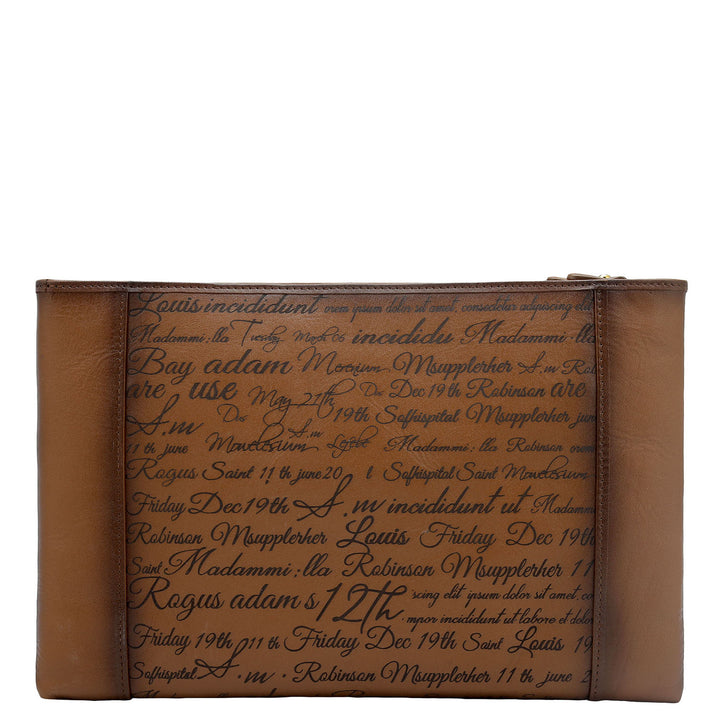 Louis incididunt orem ipsum dolor sit amet, consectetur adipiscing elit
Madammi:lla Tuesday March 06 incididu Madammi:lla
Bay adam Movesium Msupplerher S.m Robinson
are use May 21th Dec Dec 19th Robinson are
Dec 19th Sofhispital Msupplerher jun
S.m
11 th june Movelesium S.m Lefebt Madammi:lla Robinson orem
Rogus Saint 11 th june 20 l Sofhispital Saint Movelesium
Friday Dec 19th S.m incididunt ut Madamm
Robinson Msupplerher Louis Friday Dec 19th
Saint Madammi:lla Robinson Msupplerher 11
Rogus adam's 12th scing elit ipsum dolor sit amet, co
mpor incididunt ut labore et dolor
Friday 19th 11 th Friday Dec 19th Saint Louis 19
Sofhispital S.m. Robinson Msupplerher 11 th june